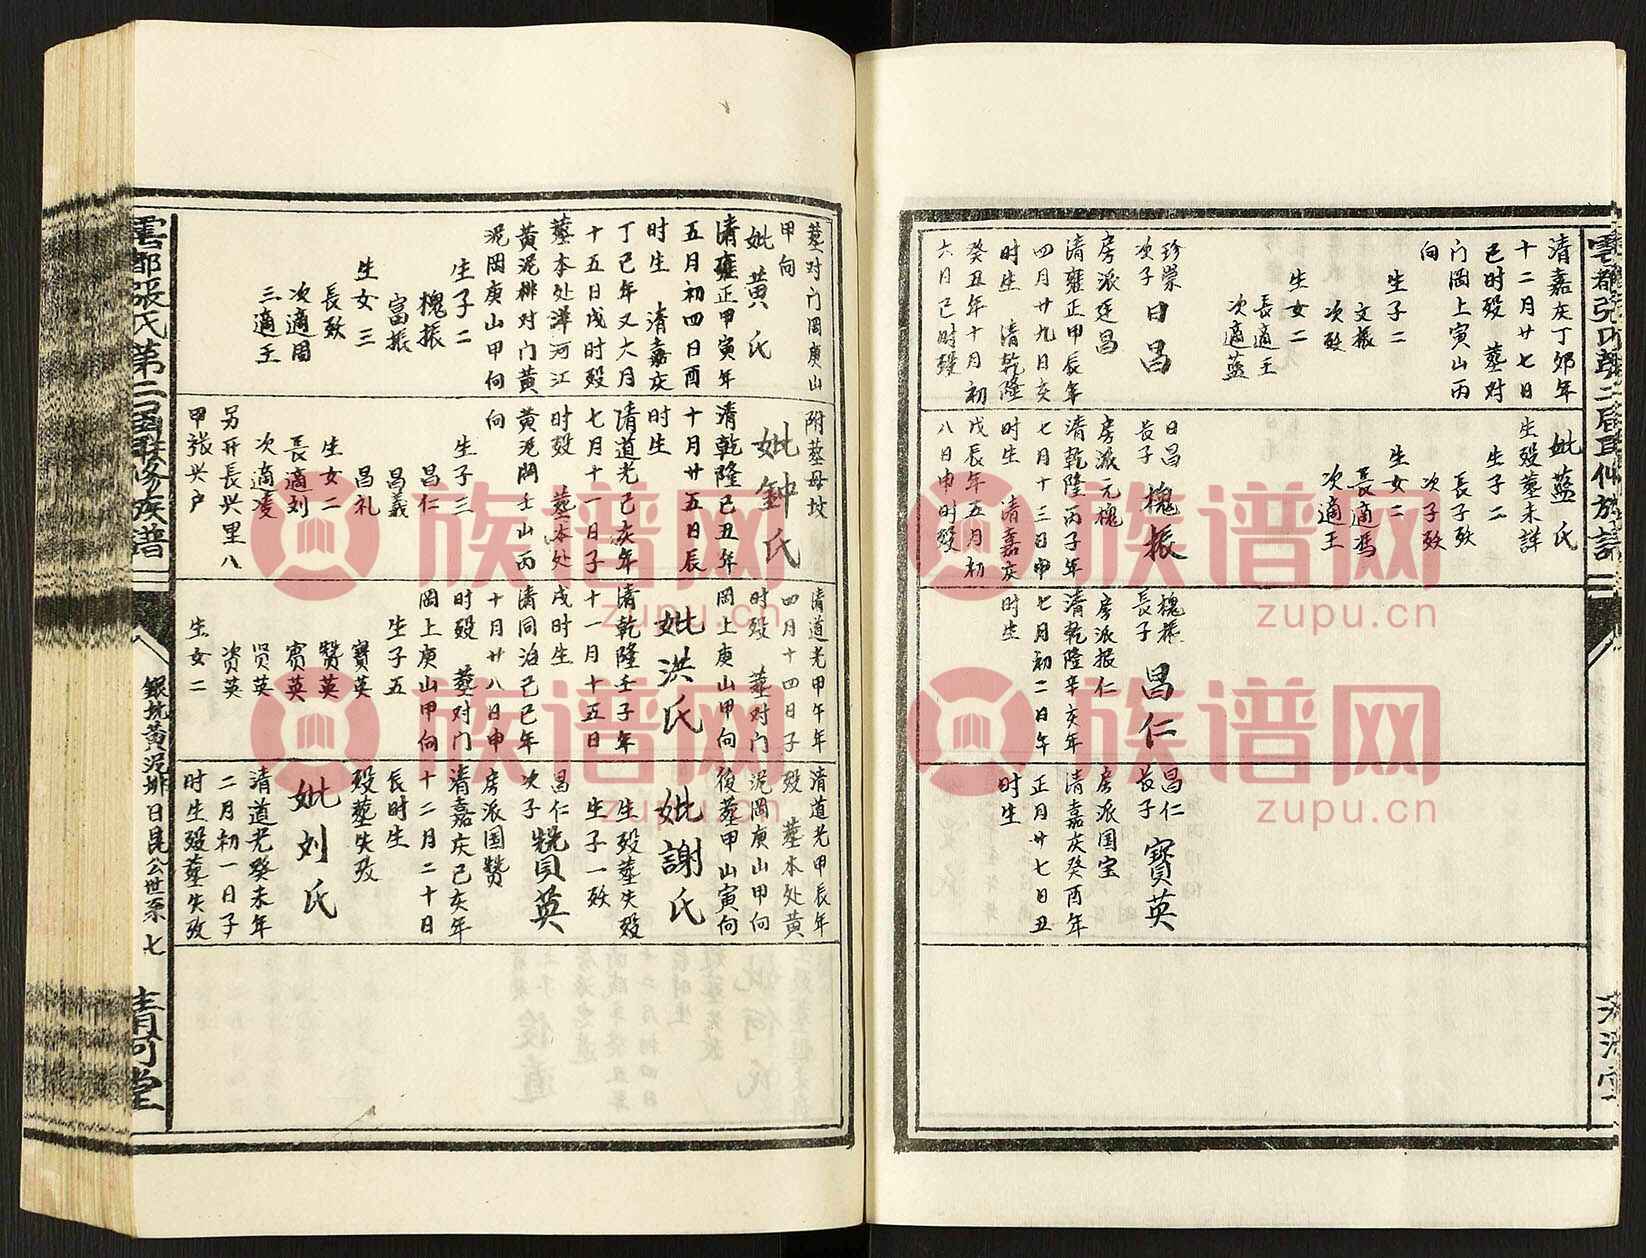 清嘉庆丁夘年
十二月廿七日
巳时殁 墓对
门岡上寅山丙
向
生子二
文振
次殁
生女二
長適王
次適蓝
珍崇
次子 日昌
房派廷昌
清雍正甲辰年
四月廿九日亥
时生 清乾隆
癸丑年十月初
六月已时殁
妣蓝氏
生殁墓未詳
生子二
長子殁
次子殁
生女二
長適馮
次適王
日昌
長子 槐振
房派元槐
清乾隆丙子年
七月十三日申
时生 清嘉庆
戊辰年五月初
八日申时殁
槐振
長子 昌仁
房派振仁
清乾隆辛亥年
七月初二日午
时生
昌仁
長子 寶英
房派国宝
清嘉庆癸酉年
正月廿七日丑
时生
墓对门岡庚山
甲向
妣黄氏
清雍正甲寅年
五月初四日酉
时生 清嘉庆
丁已年又六月
十五日戌时殁
墓本处洋河江
黄泥排对门黄
泥岡庚山甲向
生子二
槐振
富振
生女三
長殁
次適周
三適王
附墓母坟
妣鈡氏
清乾隆已丑年
十月廿五日辰
时生
清道光已亥年
七月十一日子
时殁 墓本处
黄泥岡壬山丙
向
生子三
昌仁
昌義
昌礼
生女二
長適刘
次適凌
另开長兴里八
甲張兴户
清道光甲午年
四月十四日子
时殁 墓对门
岡上庚山甲向
妣洪氏
清乾隆壬子年
十一月十五日
戌时生
清同治已已年
十月廿八日申
时殁 墓对门
岡上庚山甲向
生子五
寶英
贊英
宾英
贤英
资英
生女二
清道光甲辰年
殁 墓本处黄
泥岡庚山甲向
後墓甲山寅向
妣謝氏
生殁墓失殁
生子一殁
昌仁
次子 贊英
房派国贊
清嘉庆已亥年
十二月二十日
長时生
殁墓失殁
妣刘氏
清道光癸未年
二月初一日子
时生殁墓失殁
雲都張氏第二届聯修族譜
銀坑黄泥排日昆公世系 七
清河堂